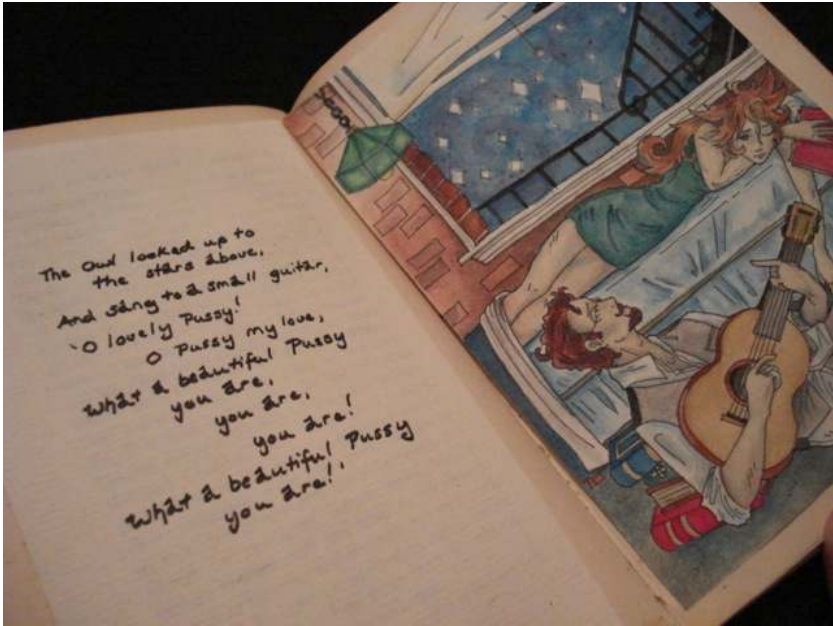 The Owl looked up to
the stars above,
And sang to a small guitar,
'O lovely Pussy!
O Pussy my love,
What a beautiful Pussy
you are,
you are,
you are!
What a beautiful Pussy
you are!'